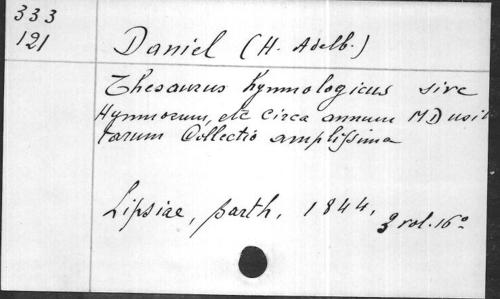 333
121
Daniel (H. Adelb.)
Thesaurus hymnologicus sive
Hymnorum, etc circa annum MD usit
tarum Collectio amplissima
Lipsiae, barth, 1844,
3 vol. 16º